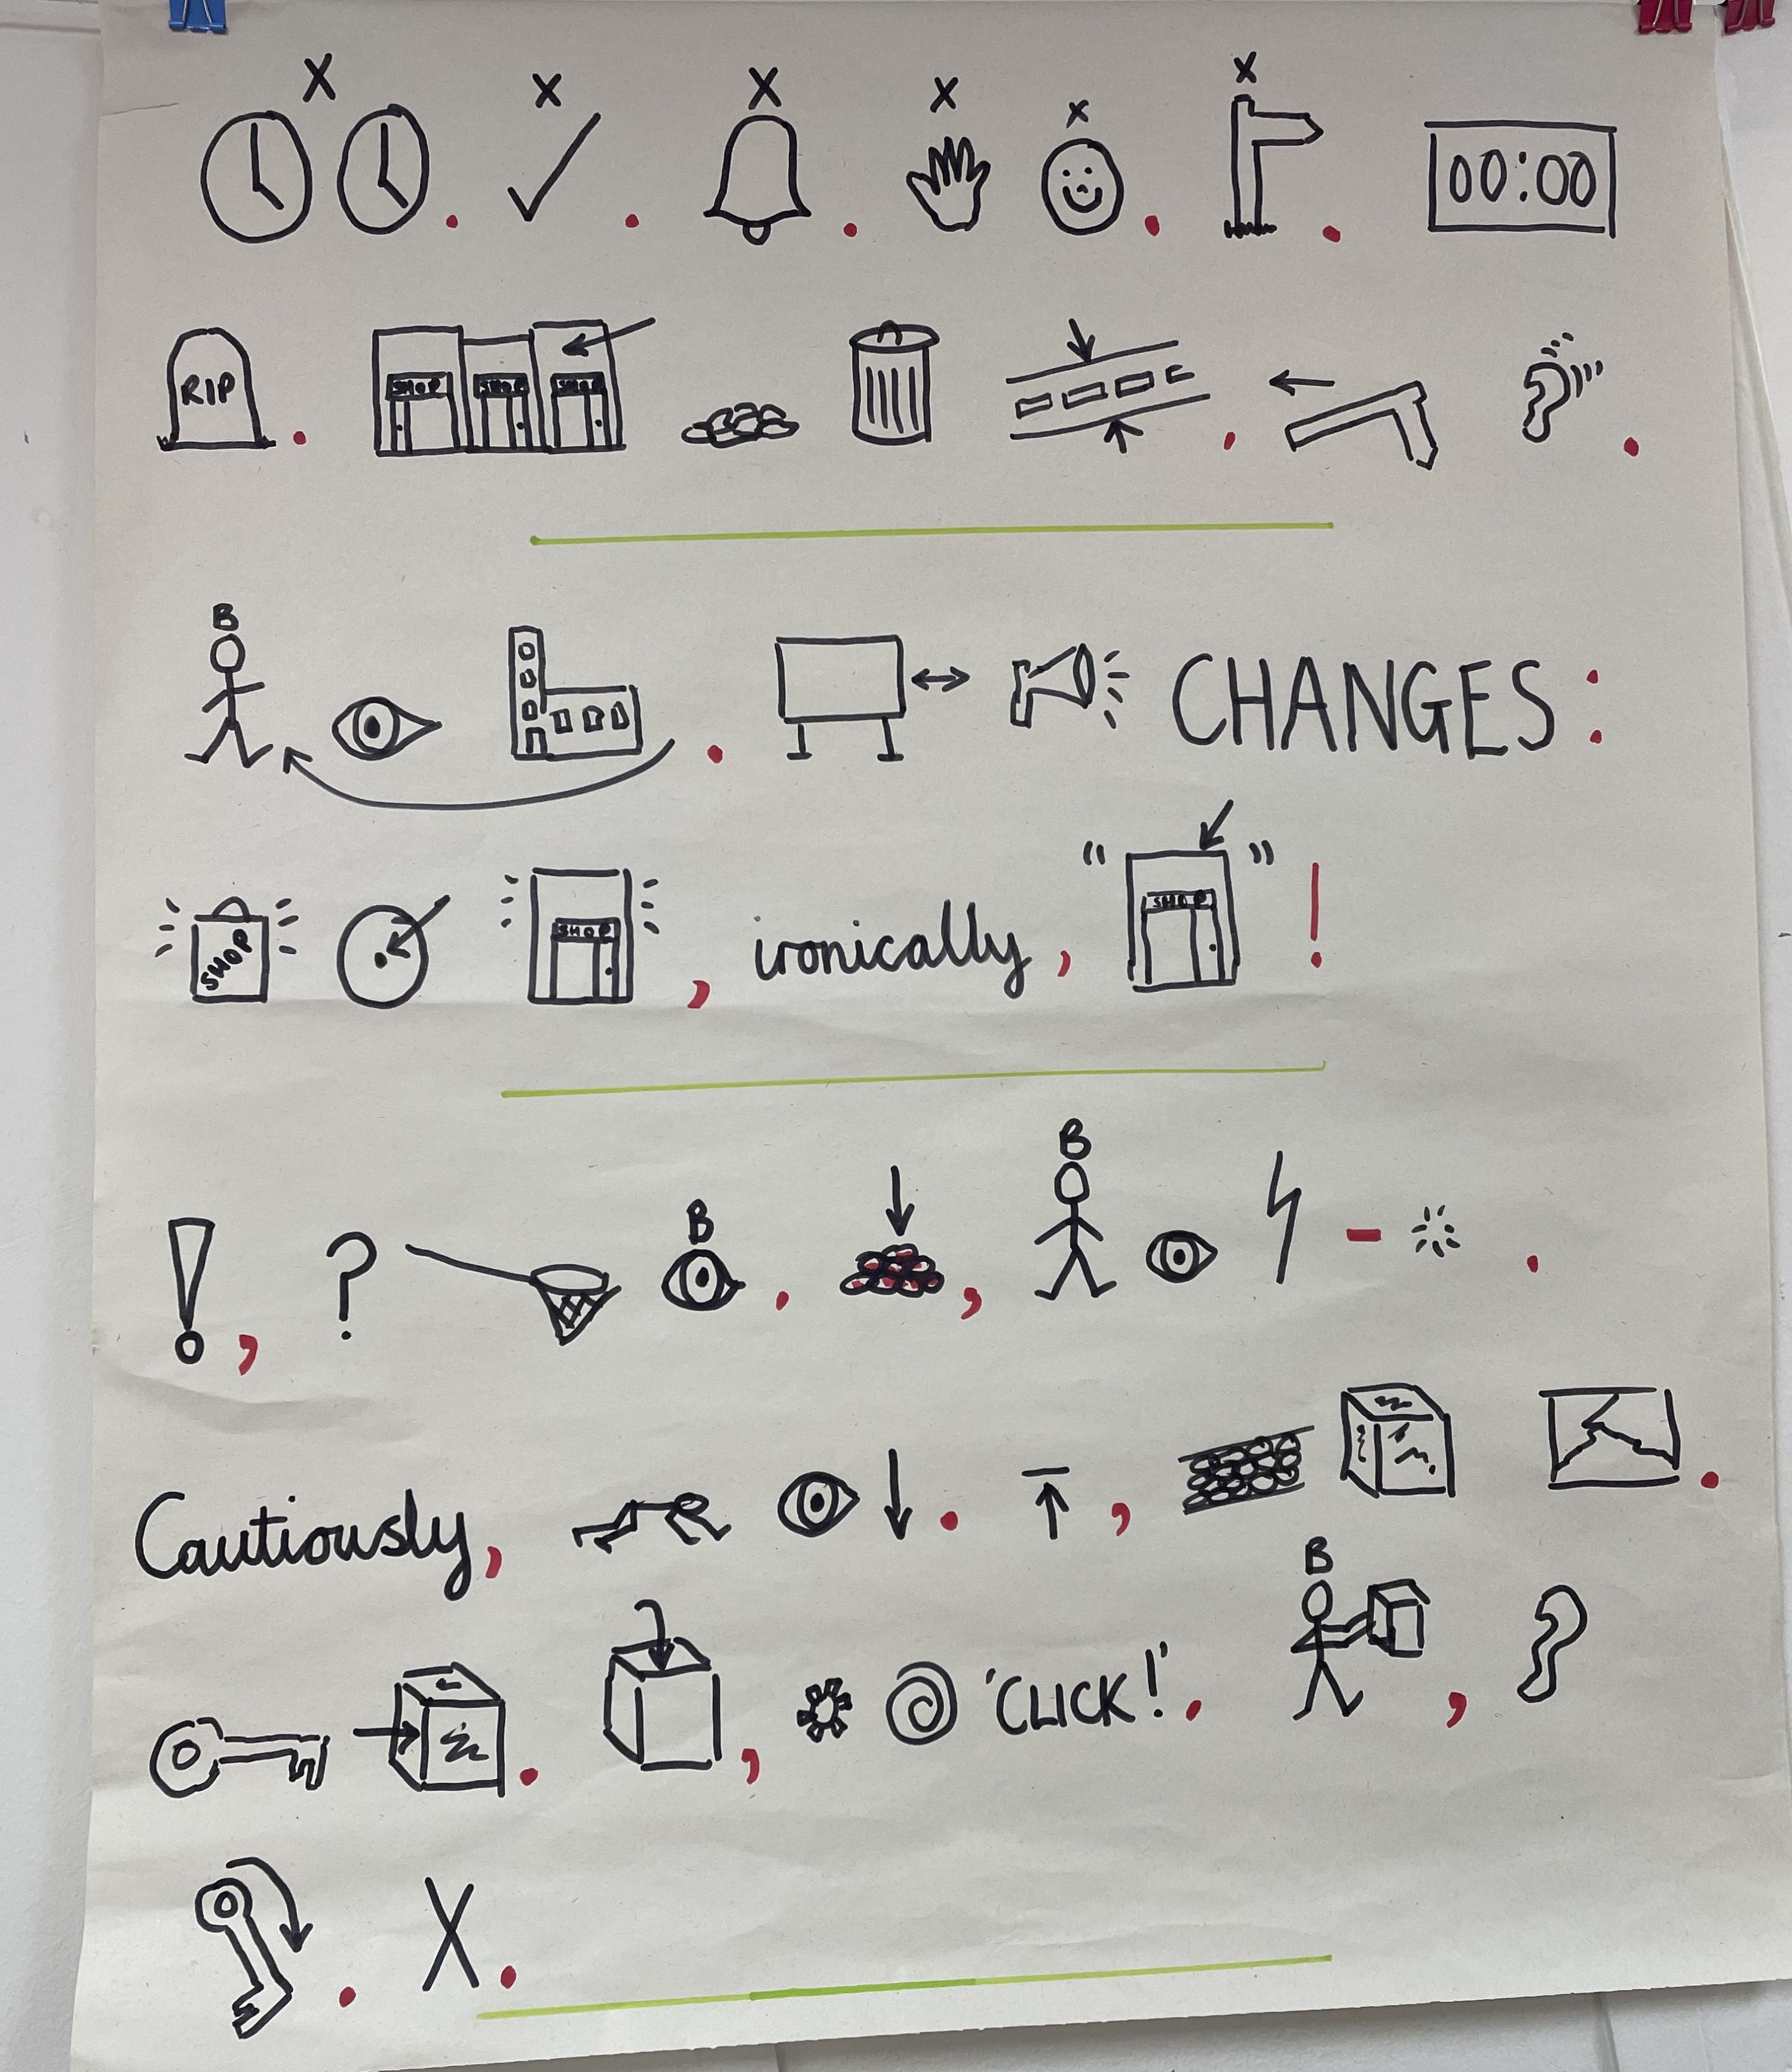 X X X X X X
00:00
RIP. SHOP SHOP SHOP
B
CHANGES:
SHOP SHOP, ironically, "SHOP"!
B
!, ? B
Cautiously,
B
'CLICK!'.
X.